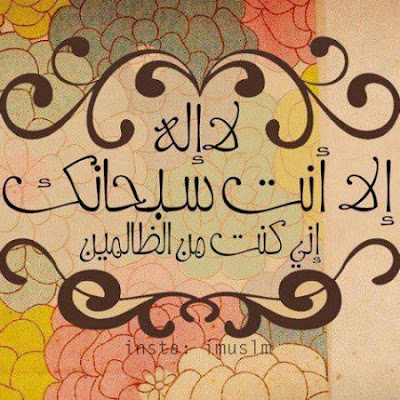 لا إله
إلا أنت سبحانك
إني كنت من الظالمين
insta: imuslm